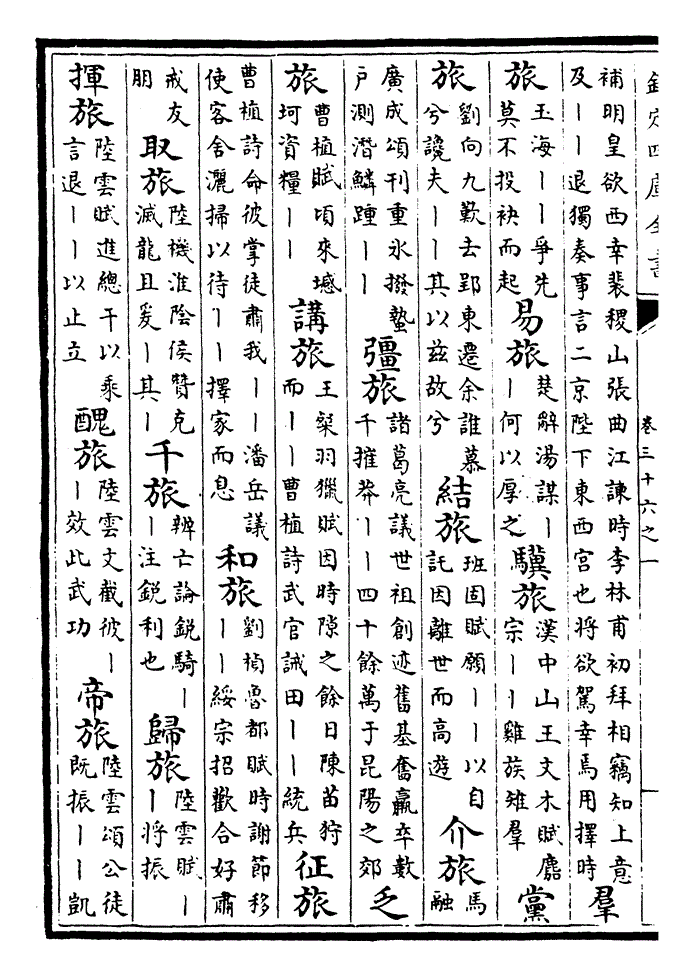 欽定四庫全書 卷三十六之一
補明皇欲西幸裴稷山張曲江諫時李林甫初拜相竊知上意
及丨丨退獨奏事言二京陛下東西宫也將欲駕幸焉用擇時
羣
旅
玉海丨丨爭先
莫不投袂而起
易旅
楚解湯謀丨
丨何以厚之
驥旅
漢中山王文木賦麚
宗丨丨雞族雉羣
黨
旅
劉向九歎去郢東遷余誰慕
兮讒夫丨丨其以兹故兮
結旅
班固賦願丨丨以自
託因離世而高遊
介旅
馬
融
廣成頌刊重氷撥蟄
户測潛鱗踵丨丨
彊旅
諸葛亮議世祖創迹舊基奮羸卒數
千摧莽丨丨四十餘萬于昆陽之郊
乏
旅
曹植賦頃來轗
坷資糧丨丨
講旅
王粲羽獵賦因時隙之餘日陳苗狩
而丨丨曹植詩武官誡田丨丨統兵
征旅
曹植詩命彼掌徒肅我丨丨潘岳議
使客舍灑掃以待丨丨擇家而息
和旅
劉楨魯都賦時謝節移
丨丨綏宗招歡合好肅
戒友
朋
取旅
陸機淮陰侯贊克
滅龍且爰丨其丨
千旅
辨亡論鋭騎丨
丨注鋭利也
歸旅
陸雲賦丨
丨將振
揮旅
陸雲賦進總干以乘
言退丨丨以止立
醜旅
陸雲文截彼丨
丨效此武功
帝旅
陸雲頌公徒
既振丨丨凱